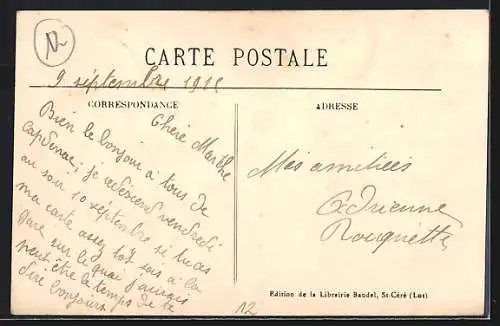 12
CARTE POSTALE
9 septembre 191
CORRESPONDANCE
ADRESSE
Chère Marthe
Bien le bonjour à tous de
Capdenac, je redescend vendredi
au soir 10 septembre si tu as
ma carte assez tôt sois à la
Gare sur le quai j'aurais
peut-être le temps de te
dire bonjour.
Mes amitiées
Adrienne
Rouquette
Edition de la Librairie Baudel, St-Céré (Lot)
12